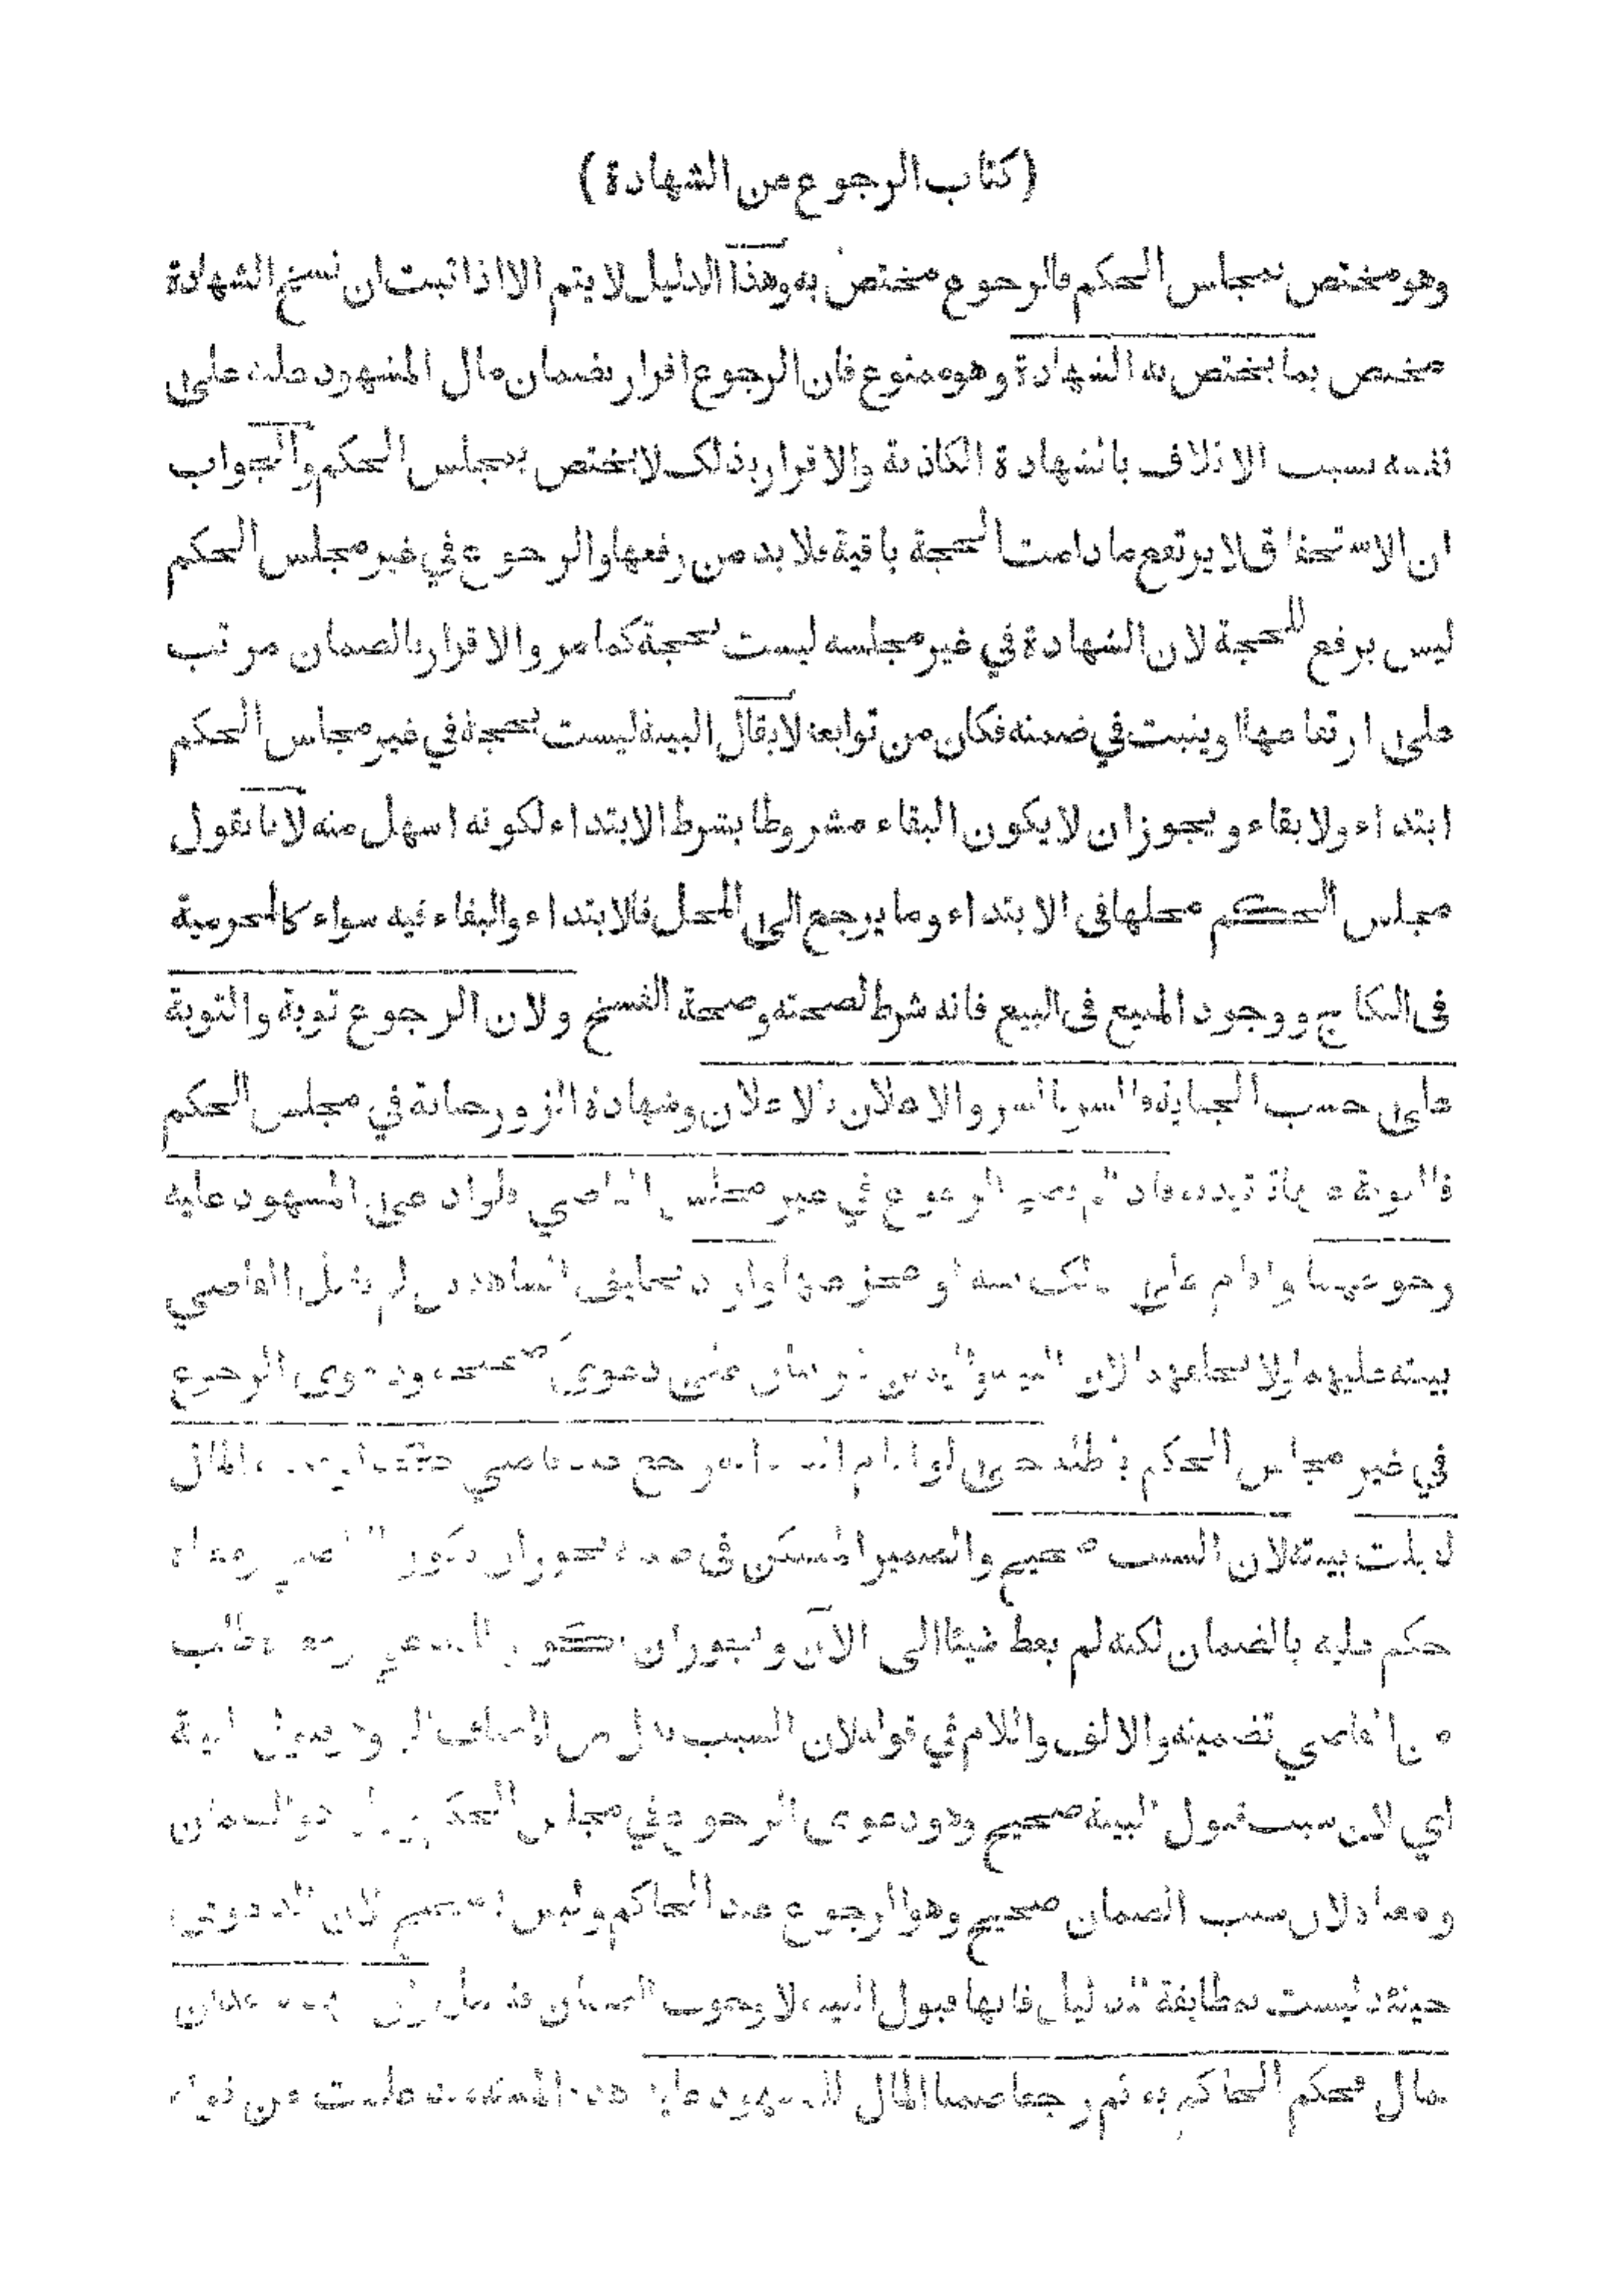 (كتاب الرجوع من الشهادة)
وهو مختص بمجلس الحكم فالرجوع مختص به وهذا الدليل لا يتم الا اذا ثبت ان نسخ الشهادة
مختص بما يختص به الشهادة وهو ممنوع فان الرجوع اقرار بضمان مال المشهود عليه على
نفسه بسبب الاتلاف بالشهادة الكاذبة والاقرار بذلك لا يختص بمجلس الحكم والجواب
ان الاستحقاق لا يرتفع ما دامت الحجة باقية فلا بد من رفعها والرجوع في غير مجلس الحكم
ليس برفع للحجة لان الشهادة في غير مجلسه ليست بحجة كما مر والاقرار بالضمان مرتب
على ارتفاعها او يثبت في ضمنه فكان من توابعه لا يقال البينة ليست بحجة في غير مجلس الحكم
ابتداء ولا بقاء ويجوز ان لا يكون البقاء مشروطا بشرط الابتداء لكونه اسهل منه لانا نقول
مجلس الحكم محلها في الابتداء وما يرجع الى المحل فالابتداء والبقاء فيه سواء كالمحرمية
في النكاح ووجود المبيع في البيع فانه شرط لصحته وصحة الفسخ ولان الرجوع توبة والتوبة
على حسب الجناية فالسر بالسر والاعلان بالاعلان وشهادة الزور جناية في مجلس الحكم
فالتوبة عنها تتقيد به فاذا لم يصح الرجوع في غير مجلس القاضي فلو ادعى المشهود عليه
رجوعهما واقام على ذلك بينة او عجز عنها واراد تحليف الشاهدين لم يقبل القاضي
بينته عليهما ولا يحلفهما لان البينة واليمين يترتبان على دعوى صحيحة ودعوى الرجوع
في غير مجلس الحكم باطلة حتى لو اقام البينة انه رجع عند قاضي المال
قبلت بينته لان السبب صحيح والضمير المستكن في ضمنه يجوز ان يكون
حكم عليه بالضمان لكنه لم يعط شيئا الى الآن ويجوز ان يكون للمدعي طلب
من القاضي تضمينه والالف واللام في قوله لان السبب بدل من المضاف اليه
اي لان سبب قبول البينة صحيح وهو دعوى الرجوع في مجلس الحكم الضمان
ومعناه لان سبب الضمان صحيح وهو الرجوع عند الحاكم وليس بصحيح لان الدعوى
حينئذ ليست مطابقة للدليل فانها قبول البينة لا وجوب الضمان
بمال فحكم الحاكم به ثم رجعا ضمنا المال للمشهود عليه هذه المسئلة علمت من قوله